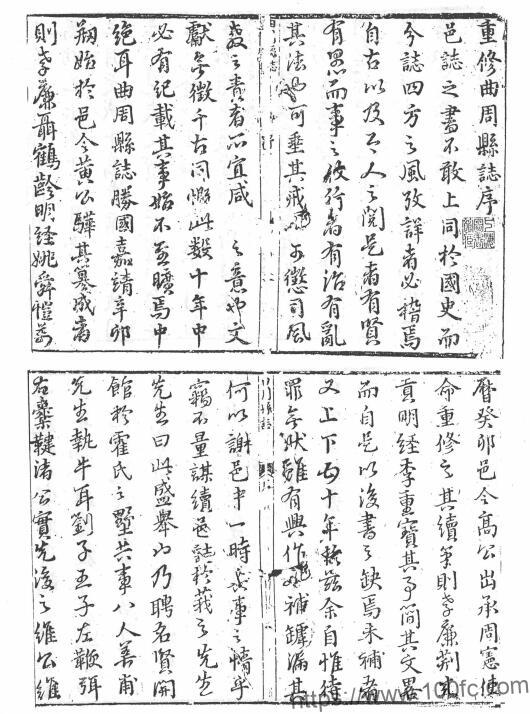 重修曲周縣誌序
邑誌之書不敢上同於國史而
今誌四方之風攷詳者必稽焉
自古以及今人之閱是者有賢
有愚而事之攸行者有治有亂
其法也可垂其戒也可懲司風
教之責者所宜咸之意也文
獻無徵千古同慨此數十年中
必有紀載其事始不至曠焉中
絕耳曲周縣誌勝國嘉靖辛卯
剏始於邑令黃公驊其纂成者
則孝廉聶鶴齡明經姚舜愷萬
曆癸卯邑令高公出承周憲使
命重修之其續筆則孝廉荊
貢明經李重寶其事簡其文畧
而自是以後書之缺焉未補者
又上下五十年於茲余自惟待
罪無狀雖有興作以補罅漏其
何以謝邑中一時長事之情乎
竊不量謀續邑誌於莪之先生
先生曰此盛舉也乃聘名賢開
館於霍氏之墅共事八人善甫
先生執牛耳劉子王子左鞭弭
右櫜鞬諸公實先後之維公維
https://www.100fc.com